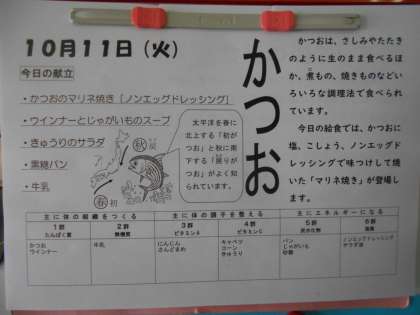 10月11日（火）
今日の献立
・かつおのマリネ焼き［ノンエッグドレッシング］
・ウインナーとじゃがいものスープ
・きゅうりのサラダ
・黒糖パン
・牛乳
秋戻
春初
太平洋を春に
北上する「初が
つお」と秋に南
下する「戻りが
つお」がよく知
られています。
かつお
かつおは、さしみやたたき
のように生のまま食べるほ
か、煮もの、焼きものなどい
ろいろな調理法で食べられ
ています。
今日の給食では、かつおに
塩、こしょう、ノンエッグド
レッシングで味つけして焼
いた「マリネ焼き」が登場し
ます。
主に体の組織をつくる 主に体の調子を整える 主にエネルギーになる
1群 2群 3群 4群 5群 6群
たんぱく質 無機質 ビタミンA ビタミンC 炭水化物 脂質
かつお 牛乳 にんじん キャベツ パン ノンエッグドレッシング
ウインナー さんどまめ コーン じゃがいも サラダ油
きゅうり 砂糖